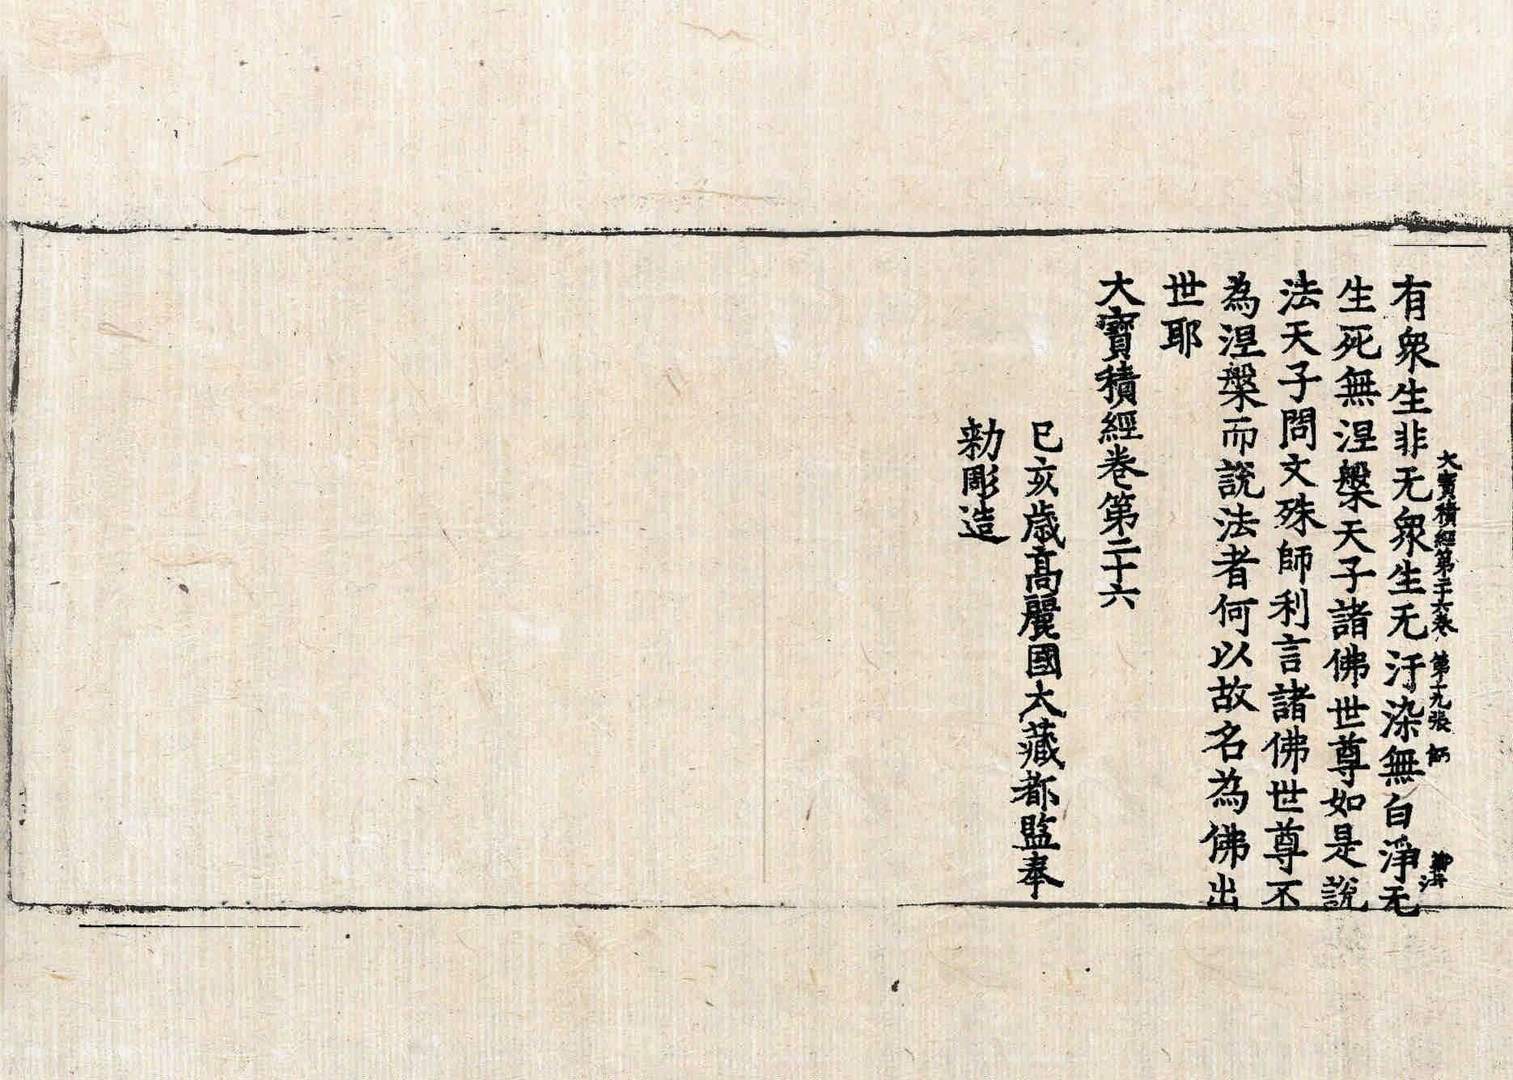 大寶積經第二十六卷 第十九張 師
有衆生非无衆生无汙染無白淨无
生死無涅槃天子諸佛世尊如是說
法天子問文殊師利言諸佛世尊不
為涅槃而說法者何以故名為佛出
世耶
大寶積經卷第二十六
己亥歲高麗國大藏都監奉
勑彫造